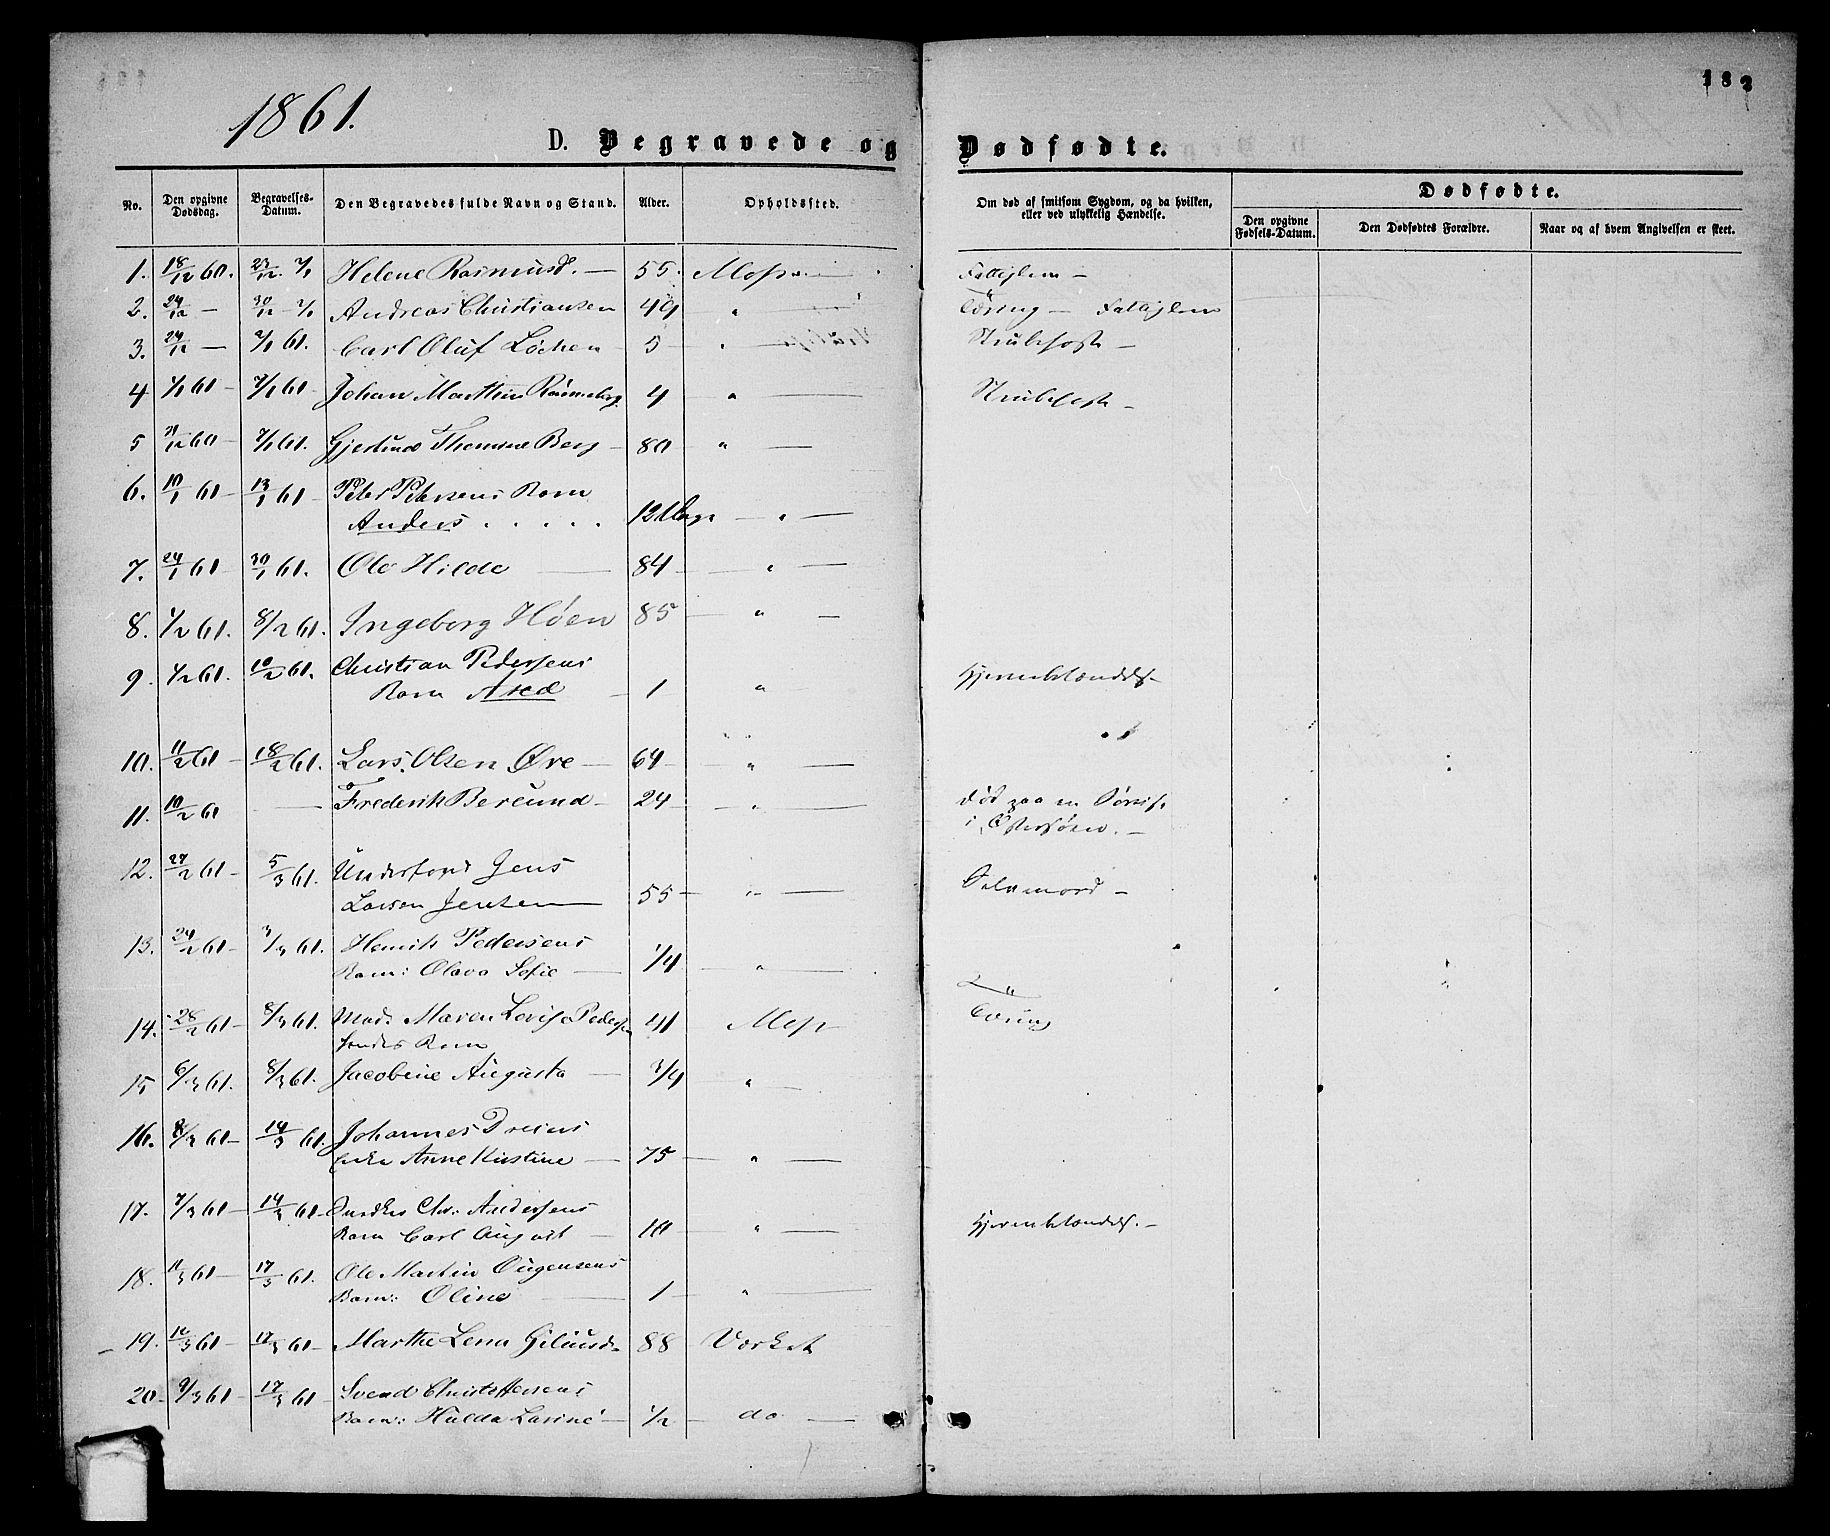 1861.
182
D. Begravede og Dødfødte.
No. Den opgivne Dødsdag. Begravelses-Datum. Den Begravedes fulde Navn og Stand. Alder. Opholdssted. Om død af smitsom Sygdom, og da hvilken, eller ved ulykkelig Hændelse. Dødfødte.
Den opgivne Fødsels-Datum. Den Dødfødtes Forældre. Naar og af hvem Angivelsen er skeet.
1. 18/12 60. Helene Rasmusd. — 55. Moss Fattiglem —
2. 24/12 — 30/12 — Andreas Christiansen 49 " Tæring — Fattiglem
3. 24/12 — 61. Carl Oluf Löchen 5 " — Strubehoste —
4 61 — 61 — Johan Marthin 4 " — Strubehoste —
5 60 — 61. Thomsens Berg — 80 " —
6. 10/1 61 — 13/1 61 — Peter Petersens Barn
Anders . . . . . 12 Dage — " —
7. 24/1 61 — 30/1 61. Ole Hilde — 84 — " —
8. 1/2 61. 8/2 61. Ingeborg Höen 85 — " —
9. 61. 10/2 61. Christian Pedersens
Barn — 1 " Hjernebetændels —
10. 11/2 61 — 18/2 61. Lars Olsen Øre — 64 — " —
11. 10/2 61 — Frederik — 24 — " — död paa en
i Östersöen. —
12. 27/2 61 — 5/3 61. Jens
Larsen Jensen — 55 — " — Selvmord —
13. 24/2 61 — 61. Henrik Pedersens
Barn: Olava Sofie — 1/4 — " —
14. 28/2 61 — 8/3 61. Mad. Maren Lovise 41 Moss Tæring
Barn
15 6/3 61. 8/3 61. Jacobine Augusta — 3/4 " —
16. 8/3 61 — 14/3 61. Johannes
Enke Anne Kirstine — 75 — " —
17. 7/3 61 — 14/3 61 — Snedker Chr. Andersens
Barn Carl August — 10 — " — Hjernebetændels. —
18. 11/3 61 — 17/3 61. Ole Martin
Barn: Oline — 1 — " —
19. 61 — 17/3 61 — Marthe Lena 88 Værket
20 — 9/3 61 — 17/3 61 Svend Christoffersens
Barn: Hulda Larine — 1/2 — do —